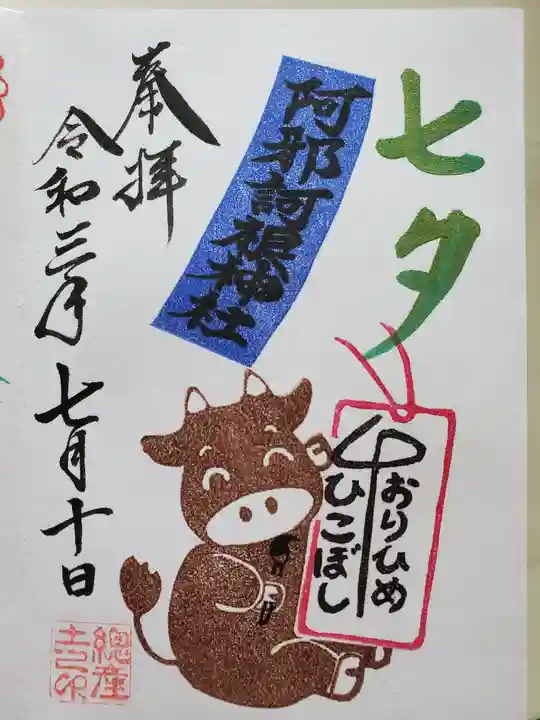 七夕
阿邪訶根神社
おりひめ
ひこぼし
奉拝
令和三年七月十日
總産
土印